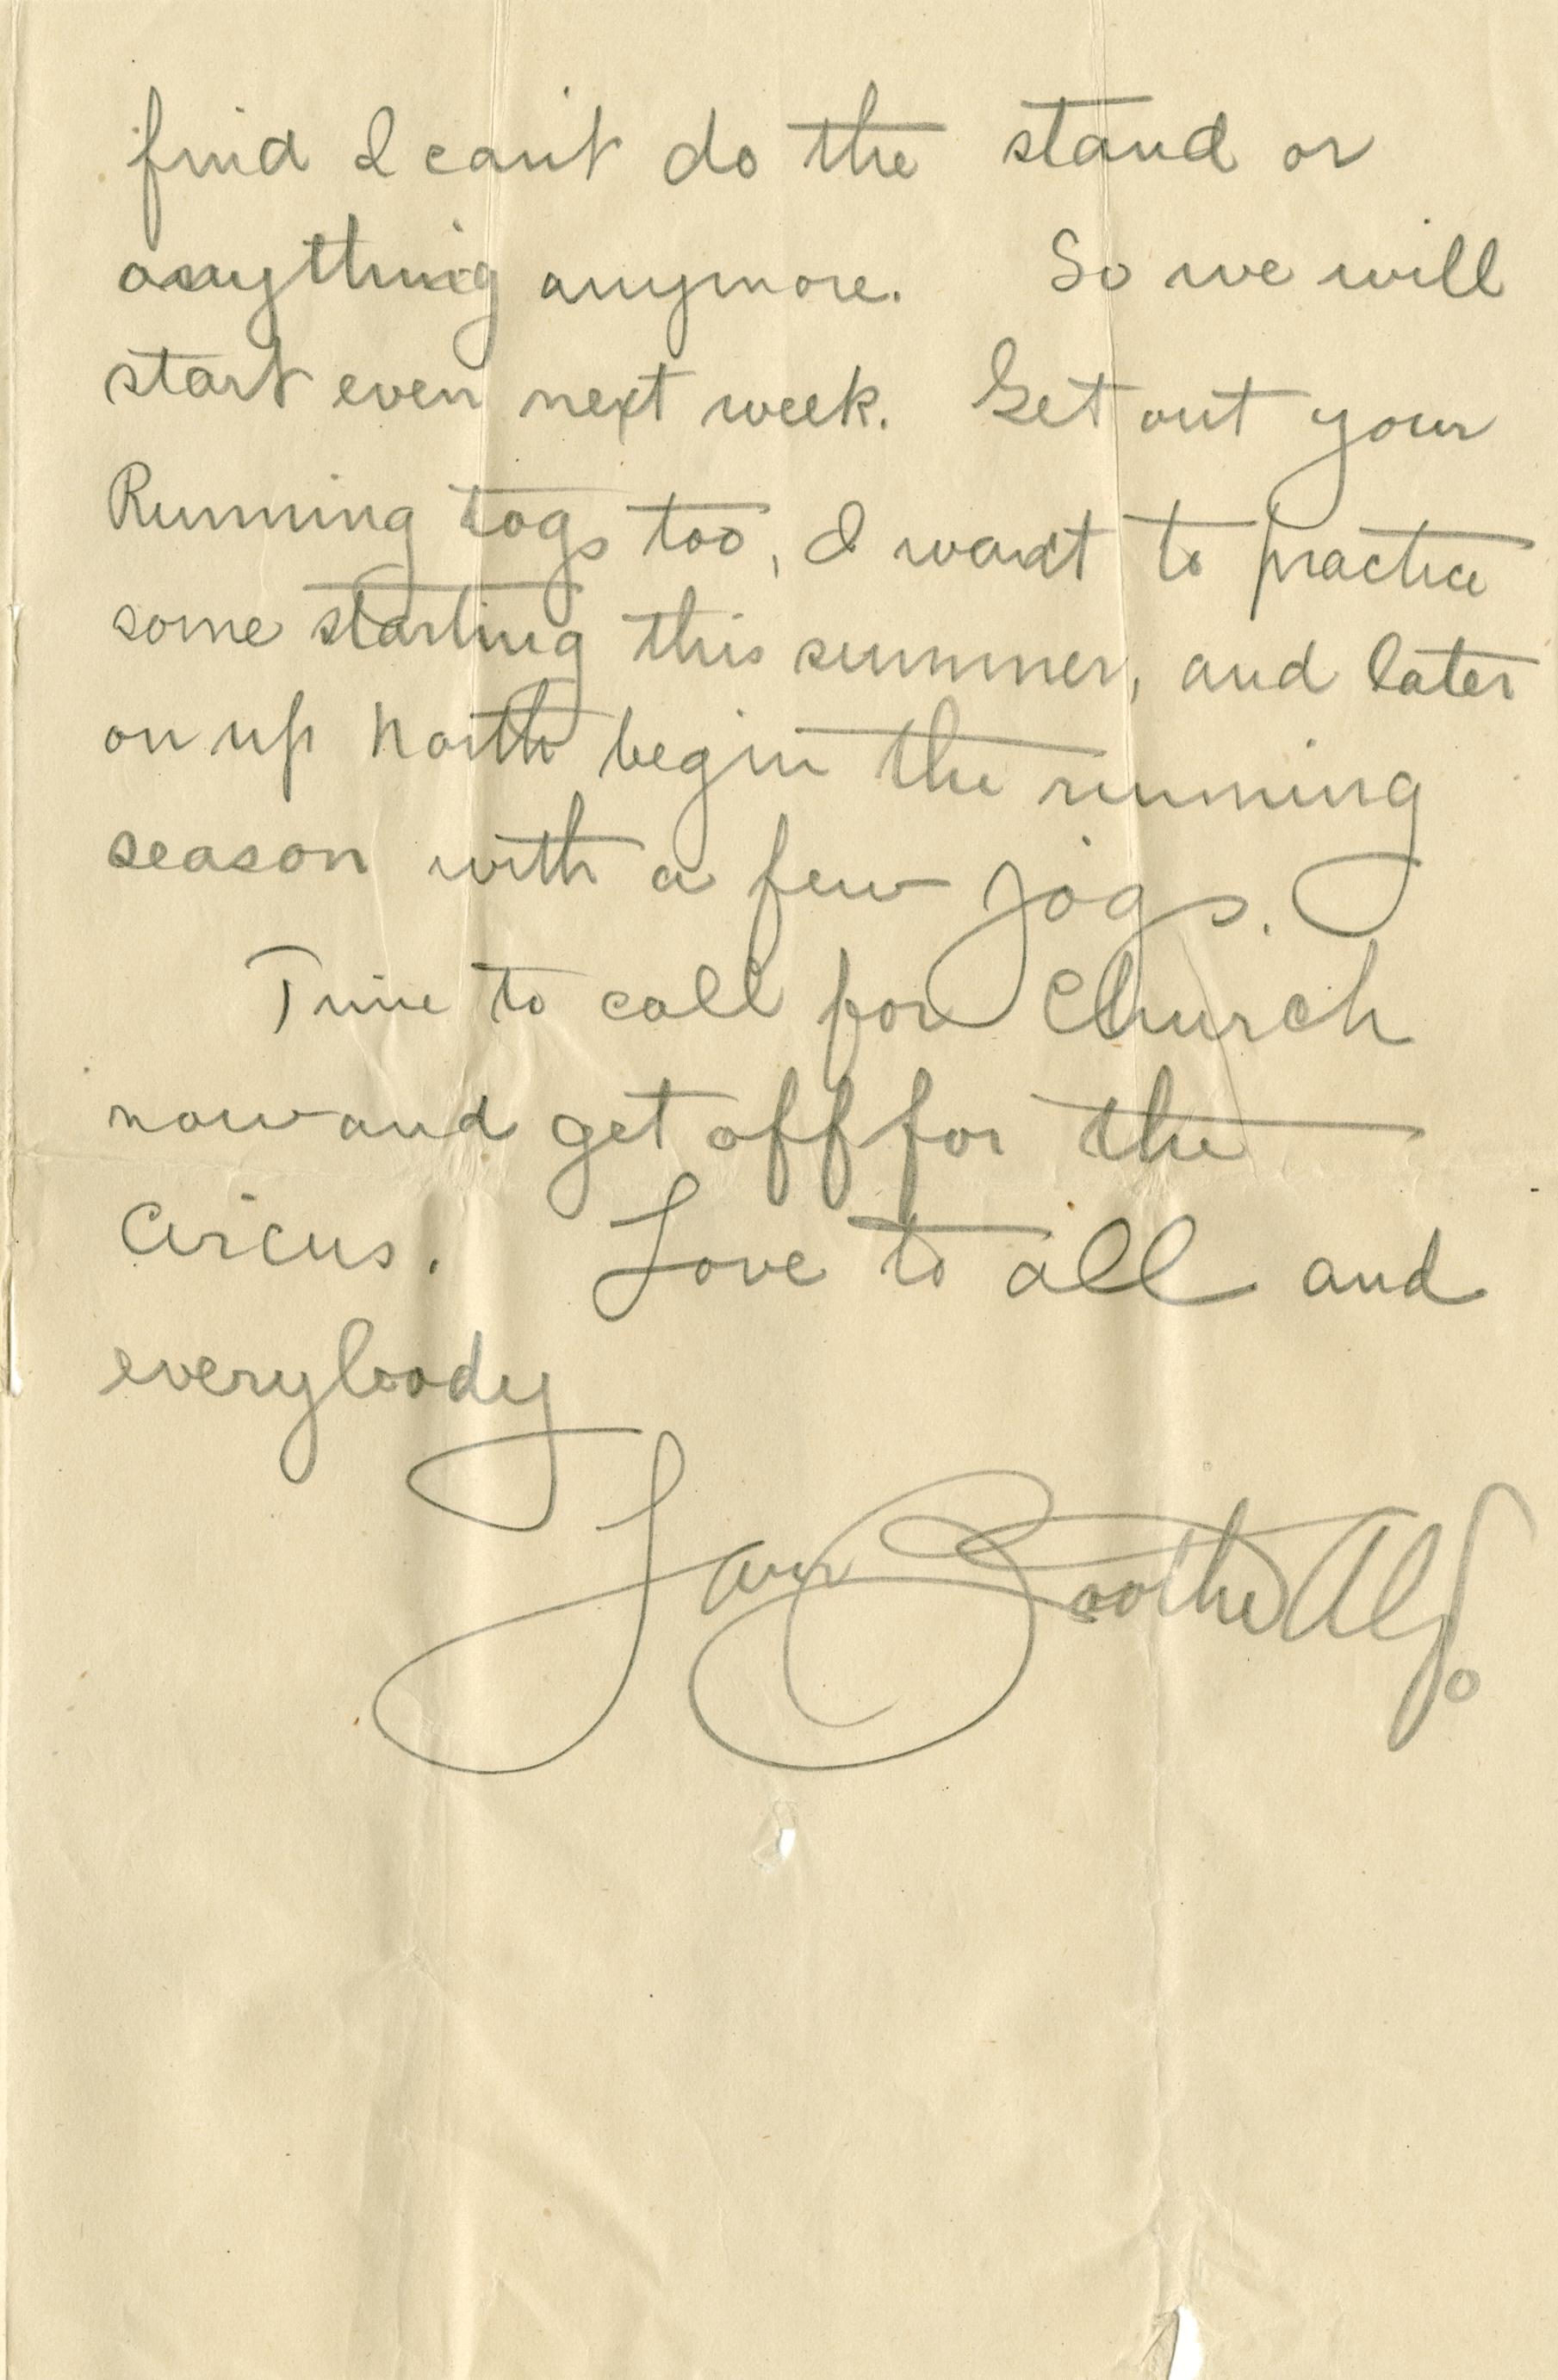 find I can't do the stand or
anything anymore. So we will
start even next week. Get out your
Running togs too, I want to practice
some starting this summer, and later
on up North begin the running
season with a few jogs.
Time to call for Church
now and get off for the
Circus. Love to all and
everybody